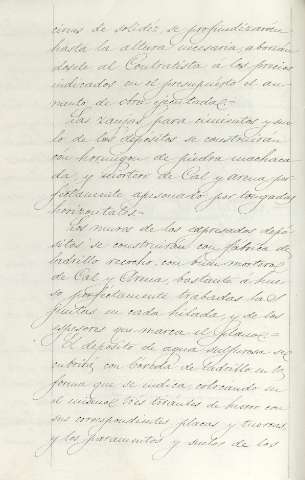 cimas de solidez, se profundizarán
hasta la altura necesaria, abonan
dosele al Contratista a los precios
indicados en el presupuesto el au-
mento de obra ejecutada.-
Las zanjas para cimientos y sue
lo de los depósitos se construirán
con hormigon de piedra machaca
da, y mortero de Cal y arena per-
fectamente apisonado por tongadas
horizontales.-
Los muros de los expresados depó-
sitos se construirán con fabrica de
ladrillo recocho, con buen mortero
de Cal y Arena, bastante a hue
so, perfectamente trabadas las
juntas en cada hilada, y de los
espesores que marca el plano.-
El depósito de agua sulfurosa se
cubrirá, con bóveda de ladrillo en la
forma que se indica, colocando en
el mismo tres tirantes de hierro con
sus correspondientes placas y tuercas,
y los paramentos y suelos de los